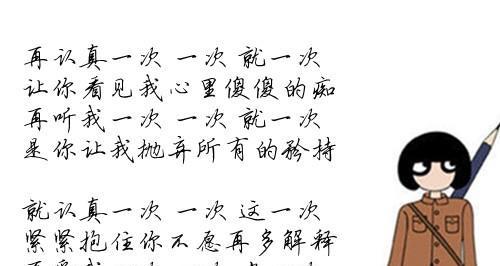 再认真一次 一次 就一次
让你看见我心里傻傻的痴
再听我一次 一次 就一次
是你让我抛弃所有的矜持
就认真一次 一次 这一次
紧紧抱住你不愿再多解释